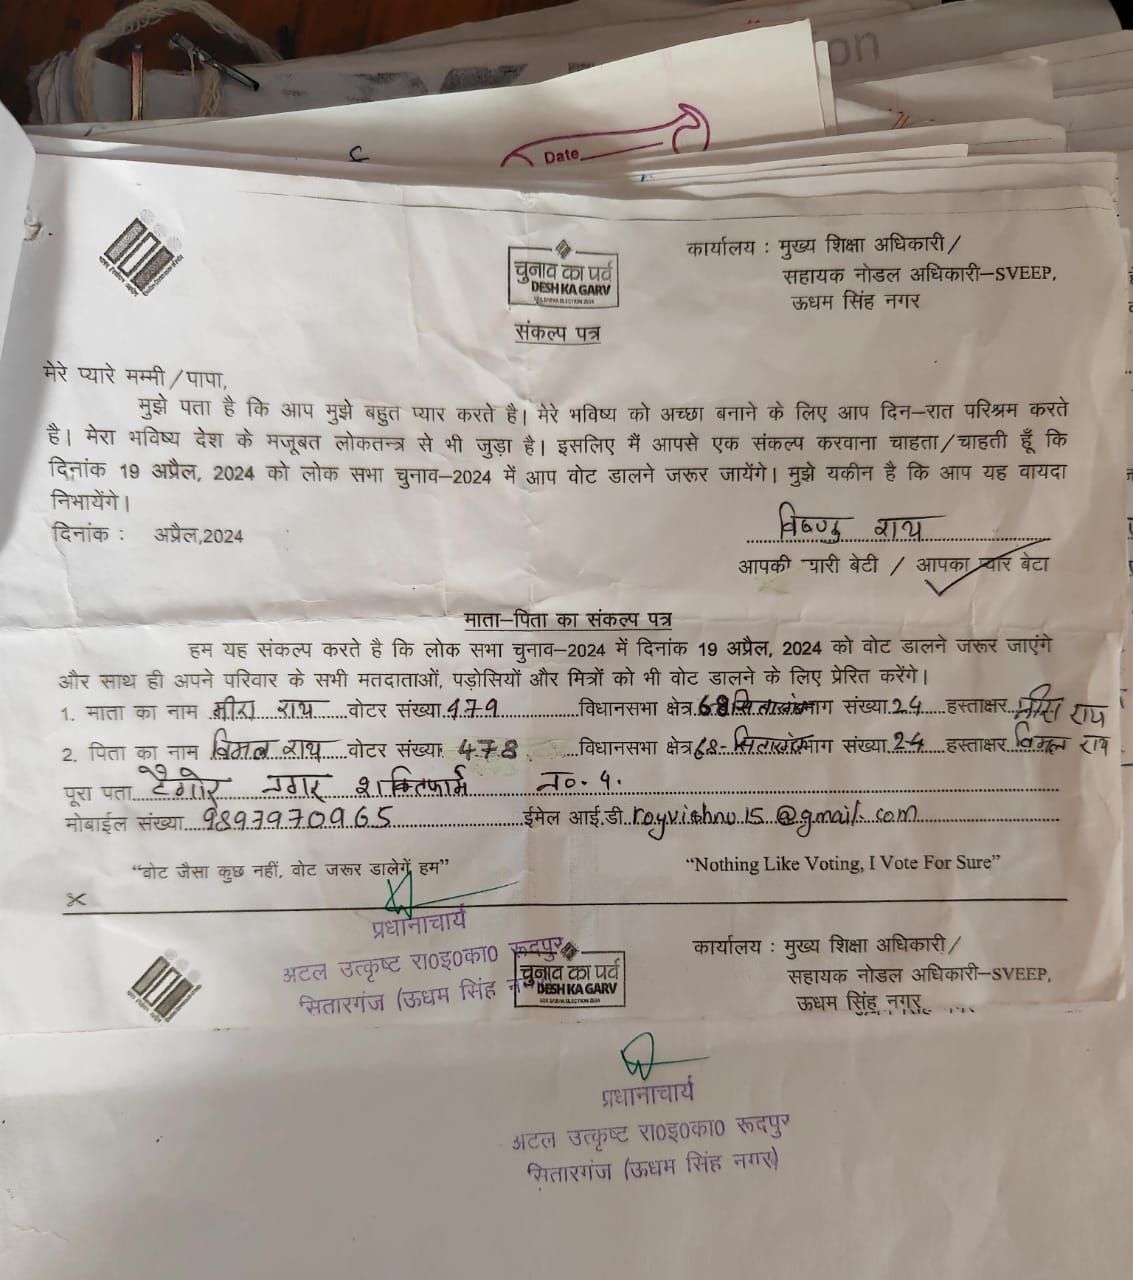 on
Date
कार्यालय : मुख्य शिक्षा अधिकारी/
सहायक नोडल अधिकारी–SVEEP,
ऊधम सिंह नगर
चुनाव का पर्व
DESH KA GARV
LOK SABHA ELECTION 2024
संकल्प पत्र
मेरे प्यारे मम्मी/पापा,
मुझे पता है कि आप मुझे बहुत प्यार करते है। मेरे भविष्य को अच्छा बनाने के लिए आप दिन–रात परिश्रम करते
है। मेरा भविष्य देश के मजूबत लोकतन्त्र से भी जुड़ा है। इसलिए मैं आपसे एक संकल्प करवाना चाहता/चाहती हूँ कि
दिनांक 19 अप्रैल, 2024 को लोक सभा चुनाव–2024 में आप वोट डालने जरूर जायेंगे। मुझे यकीन है कि आप यह वायदा
निभायेंगे।
दिनांक : अप्रैल,2024
विष्णु राय
आपकी प्यारी बेटी / आपका प्यार बेटा
माता–पिता का संकल्प पत्र
हम यह संकल्प करते है कि लोक सभा चुनाव–2024 में दिनांक 19 अप्रैल, 2024 को वोट डालने जरूर जाएंगे
और साथ ही अपने परिवार के सभी मतदाताओं, पड़ोसियों और मित्रों को भी वोट डालने के लिए प्रेरित करेंगे।
1. माता का नाम मीरा राय वोटर संख्या 479 विधानसभा क्षेत्र 68 सितारगंज भाग संख्या 24 हस्ताक्षर मीरा राय
2. पिता का नाम बिमल राय वोटर संख्या 478 विधानसभा क्षेत्र 68-सितारगंज भाग संख्या 24 हस्ताक्षर बिमल राय
पूरा पता टैगोर नगर शक्तिफार्म न०. 4.
मोबाईल संख्या 9897970965 ईमेल आई.डी. royvishnu15@gmail.com
“वोट जैसा कुछ नहीं, वोट जरूर डालेगें हम” “Nothing Like Voting, I Vote For Sure”
प्रधानाचार्य
अटल उत्कृष्ट रा0इ0का0 रूदपुर
सितारगंज (ऊधम सिंह
कार्यालय : मुख्य शिक्षा अधिकारी/
सहायक नोडल अधिकारी–SVEEP,
ऊधम सिंह नगर
चुनाव का पर्व
DESH KA GARV
LOK SABHA ELECTION 2024
प्रधानाचार्य
अटल उत्कृष्ट रा0इ0का0 रूदपुर
सितारगंज (ऊधम सिंह नगर)